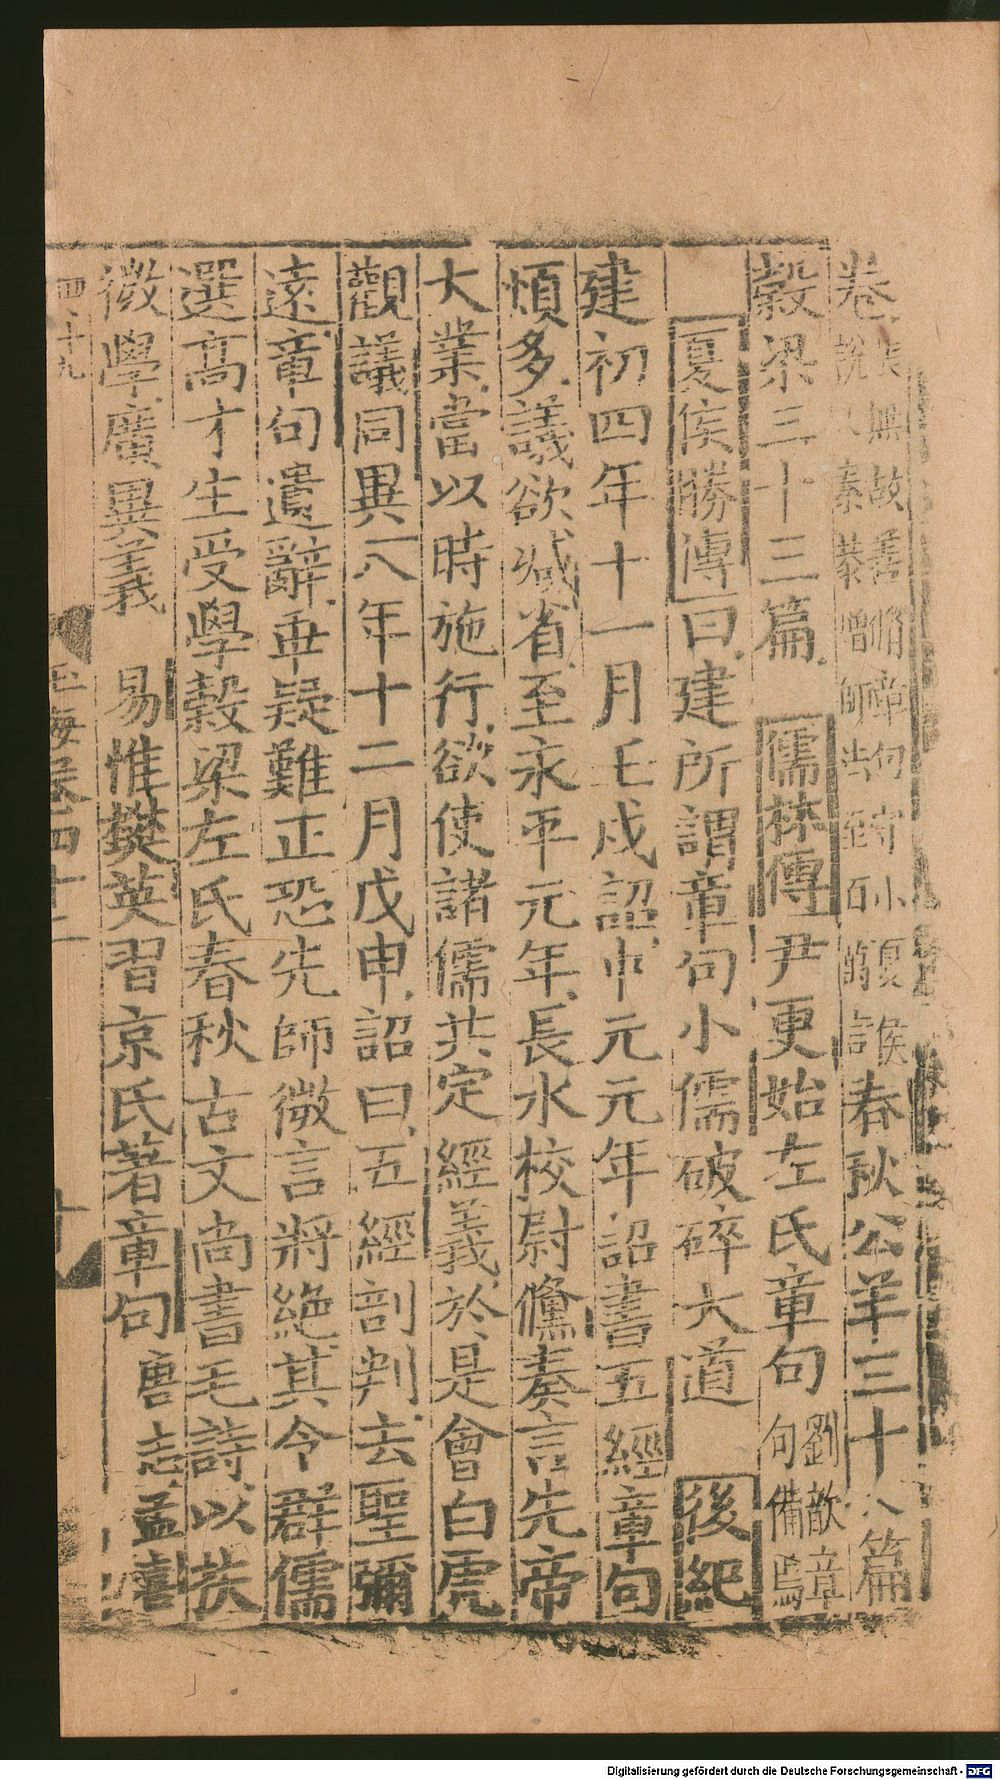 卷張無故善脩章句守小夏侯說文秦恭增師法至百萬言春秋公羊三十八篇
穀梁三十三篇 儒林傳尹更始左氏章句劉歆章句備焉
夏侯勝傳曰建所謂章句小儒破碎大道 後紀
建初四年十一月壬戌詔中元元年詔書五經章句
煩多議欲減省至永平元年長水校尉儵奏言先帝
大業當以時施行欲使諸儒共定經義於是會白虎
觀議同異八年十二月戊申詔曰五經剖判去聖彌
遠章句遺辭乖疑難正恐先師微言將絶其令群儒
選高才生受學穀梁左氏春秋古文尚書毛詩以扶
微學廣異義 易惟樊英習京氏著章句 唐志孟喜
四十九 玉海卷四十二
Digitalisierung gefördert durch die Deutsche Forschungsgemeinschaft - DFG